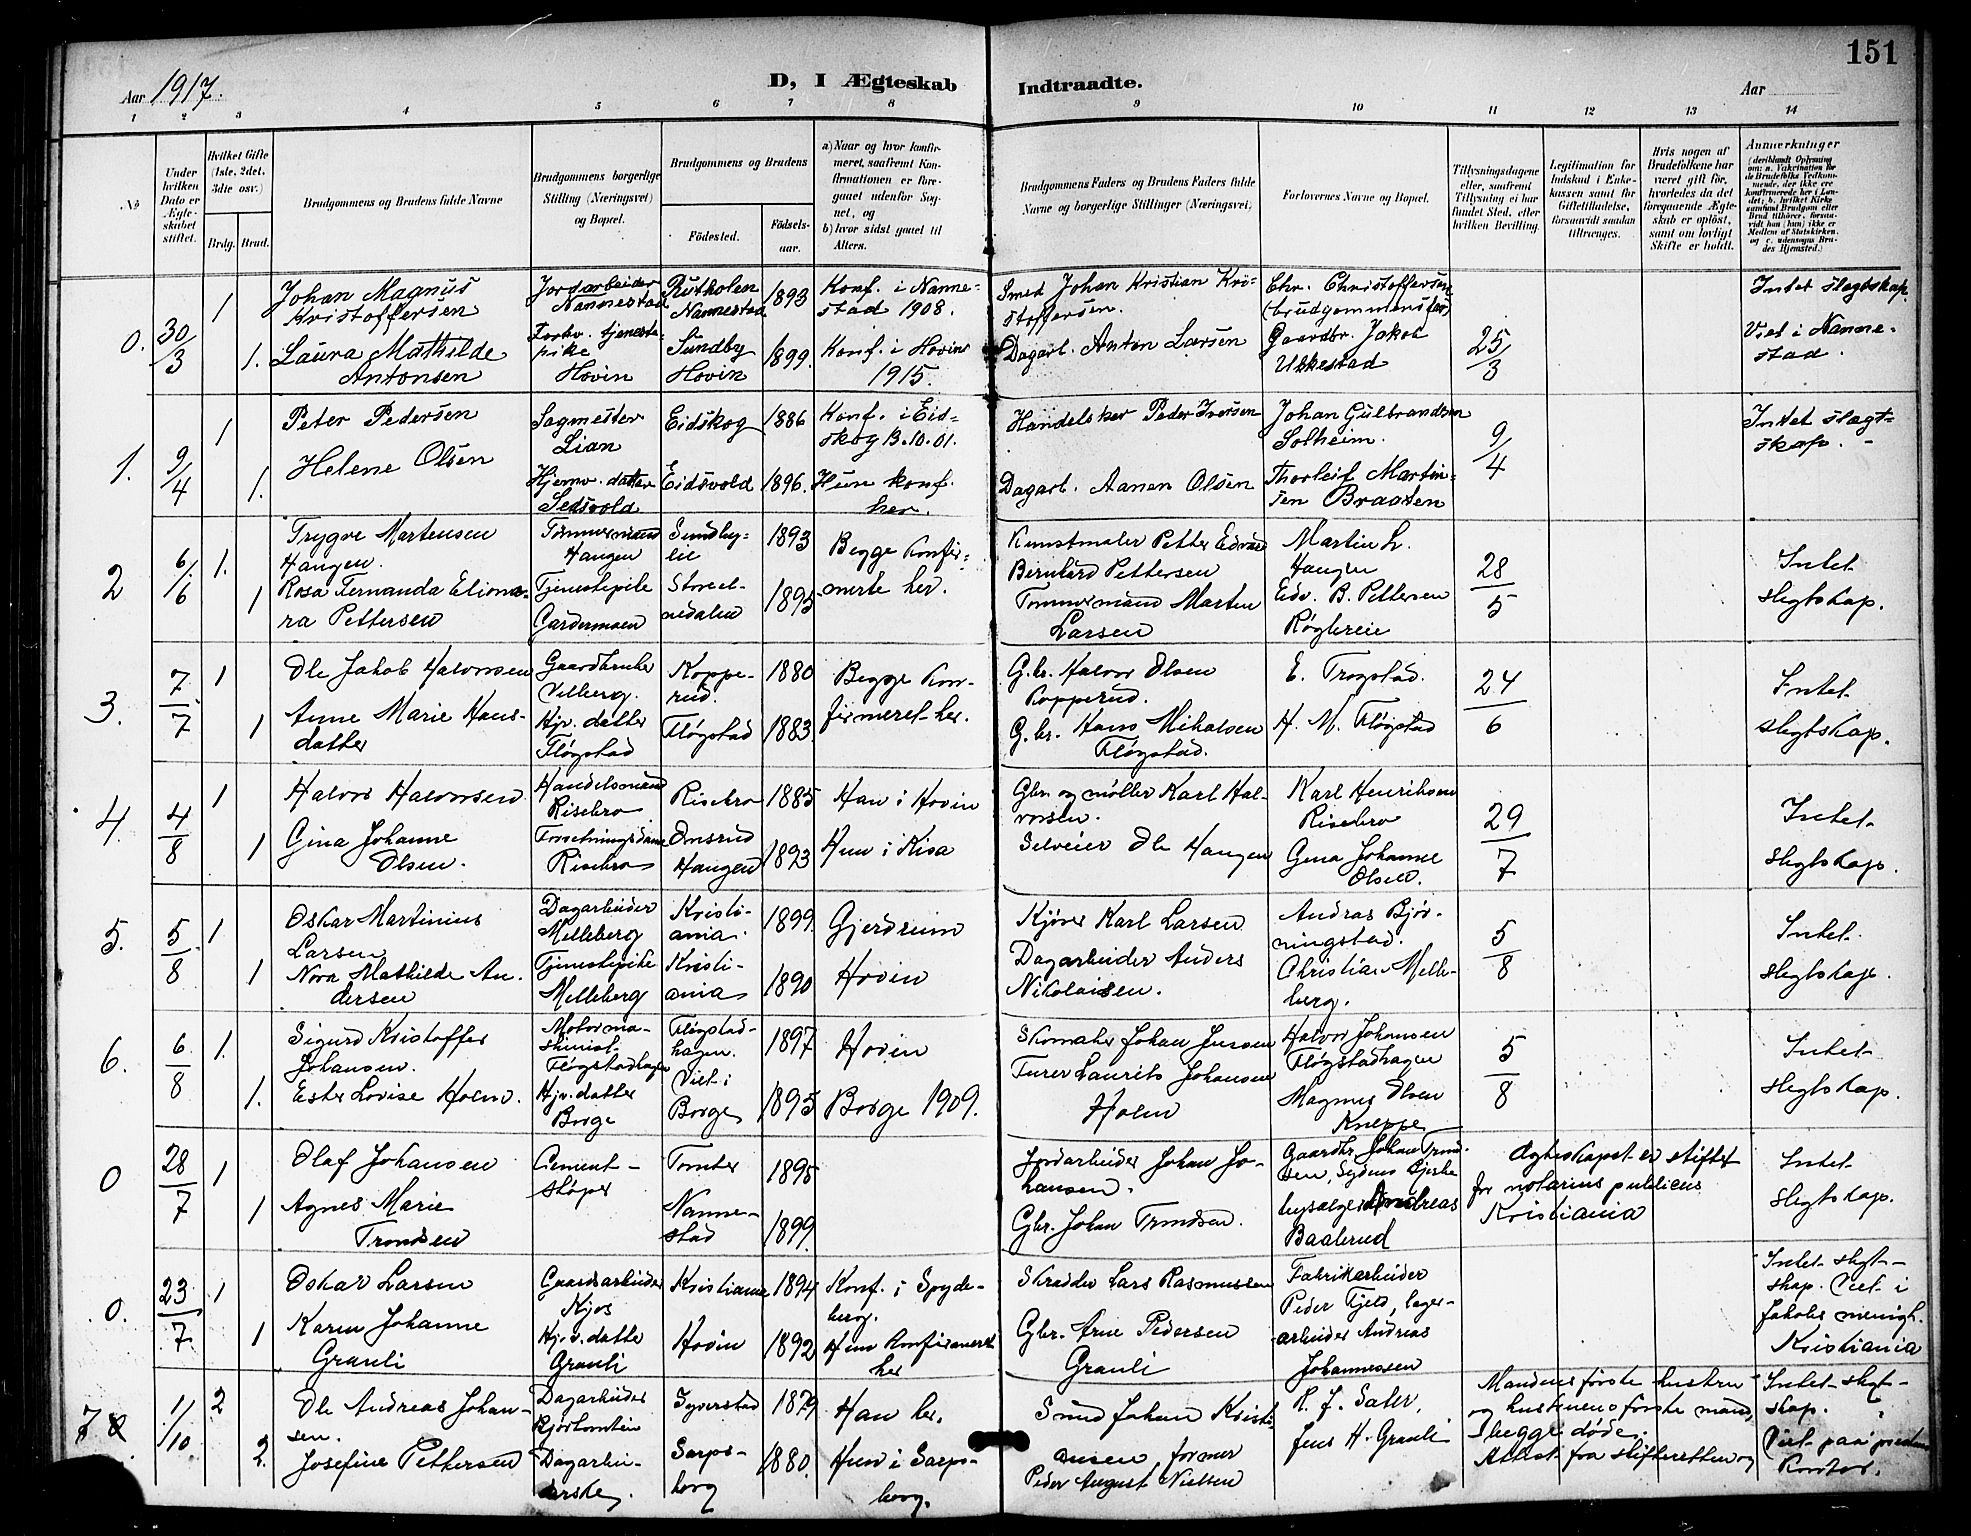 151
Aar 1917.
D, I Ægteskab Indtraadte.
Aar
1 2 3 4 5 6 7 8 9 10 11 12 13 14
No
Under hvilken Dato er Ægteskabet stiftet.
Hvilket Gifte (1ste, 2det, 3die osv.)
Brdg. Brud.
Brudgommens og Brudens fulde Navne
Brudgommens borgerlige Stilling (Næringsvei) og Bopæl.
Brudgommens og Brudens
Fødested.
Fødselsaar.
a) Naar og hvor konfirmeret, saafremt Konfirmationen er foregaaet udenfor Sognet, og
b) hvor sidst gaaet til Alters.
Brudgommens Faders og Brudens Faders fulde Navne og borgerlige Stillinger (Næringsvei)
Forlovernes Navne og Bopæl.
Tillysningsdagene eller, saafremt Tillysning ei har fundet Sted, efter hvilken Bevilling.
Legitimation for Indskud i Enkekassen samt for Giftetilladelse, forsaavidt saadan tiltrænges.
Hvis nogen af Brudefolkene har været gift før, hvorledes da det foregaaende Ægteskab er opløst, samt om lovligt Skifte er holdt.
Anmerkninger
0. 30/3 1 Johan Magnus Kristoffersen
Jordarbeider Nannestad
Rutholen Nannestad 1893
Konf. i Nannestad 1908.
Smed Johan Kristian Kristoffersen.
Chr. Christoffersen (brudgommens far)
25/3
Intet slagtskap.
1. Laura Mathilde Antonsen
Forhv. tjenestepike Hovin
Sundby Hovin 1899.
Konf. i Hovin 1915.
Dagarb. Anton Larsen
Gaardbr. Jakob Ukkestad
Viet i Nannestad.
1. 9/4 1 Peter Pedersen
Sagmester Lian
Eidskog 1886
Konf. i Eidskog 13.10.01.
Handelsker Peder Iversen
Johan Gulbrandsen Solheim.
9/4
Intet slægtskap.
1. Helene Olsen
Hjemv. datter
Eidsvold 1896.
Hun konf. her.
Dagarb. Aanen Olsen
Thorleif Martinsen Braaten
2 6/6 1. Trygve Martensen Haugen.
Tømmermand Haugen
Sundbyeie 1893
Begge konfirmerte her.
Kunstmaler Petter Edvard Bernhard Pettersen
Martin L. Haugen
28/5
Intet slegtskap.
1 Rosa Fernanda Elionora Pettersen
Tjenestepike Gardermoen
1895
Tømmermand Marten Larsen
Edv. B. Pettersen
3. 7/7 1 Ole Jakob Halvorsen
Gaardbruker
Kopperud. 1880
Begge konfirmeret her.
G.br. Halvor Olsen Kopperud.
E. Trogstad.
24/6
Intet slegtskap.
1 Anne Marie Hansdatter
Hjv. datter Fløgstad
Fløgstad 1883.
G.br. Hans Mikalsen Fløgstad.
H. M. Fløgstad
4. 4/8 1 Halvor Halvorsen
Handelsmand Risebro
Risebro 1885
Han i Hovin
Gbr. og møller Karl Halvorsen.
Karl Henriksen Risebro
29/7
Intet slegtskap.
1 Gina Johanne Olsen.
Forretningsdame Risebro
Onsrud Haugen 1893
Hun i Kisa
Selveier Ole Haugen
Gina Johanne Olsen.
5. 5/8 1 Oskar Martinius Larsen
Dagarbeider Melleberg
Kristiania. 1899.
Gjerdrum
Kjører Karl Larsen
Andras Bjørningstad.
5/8
Intet slegtskap.
1 Nora Mathilde Andersen
Tjenestepike Melleberg
Kristiania 1890
Hovin
Dagarbeider Anders Nikolaisen.
Christian Melleberg.
6. 6/8 1. Sigurd Kristoffer Johansen.
Motormaskinist Fløgstadhagen
Fløgstadhagen. 1897
Hovin
Skomaker Johan Jensen
Halvor Johansen Fløgstadhagen
5/8
Intet slegtskap.
1. Ester Lovise Holm.
Hjv. datter Borge
Viet i Borge 1895
Borge 1909.
Furer Laurits Johansen Holm
Magnus Olsen Kneppe
0 28/7 1 Olaf Johansen
Cementstøper
Tomter 1895
Jordarbeider Johan Johansen.
Gaardbr. Johan Trondsen,
Ægteskapet er stiftet for notarius publicus Kristiania
Intet slegtskap.
1 Agnes Marie Trondsen
Nannestad 1899.
Gbr. Johan Trondsen.
Andreas Baalerud
0. 23/7 1 Oskar Larsen
Gaardsarbeider Kjos
Kristiania 1894
Konf. i Spydeberg.
Skrædder Lars Rasmussen
Fabrikarbeider Peder Fjeld, lagerarbeider Andreas Johannessen
Intet slegtskap. Viet i Jakobs menigh. Kristiania
1 Karen Johanne Grauli
Hjv. datter Grauli
Hovin 1892
Hun konfirmeret her
Gbr. Arne Pedersen Grauli
7 1/10 2 Ole Andreas Johansen.
Dagarbeider
Syverstad 1879
Han her.
Smed Johan Kristiansen, former Peder August Nielsen
Mandens første hustru og hustruens første mand, begge døde.
Attest fra skifteretten
Intet slegtskap.
Viet paa prestens kontor.
2. Josefine Pettersen
Dagarbeiderske.
Sarpsborg 1880.
Hun i Sarpsborg.
Jens H. Grauli